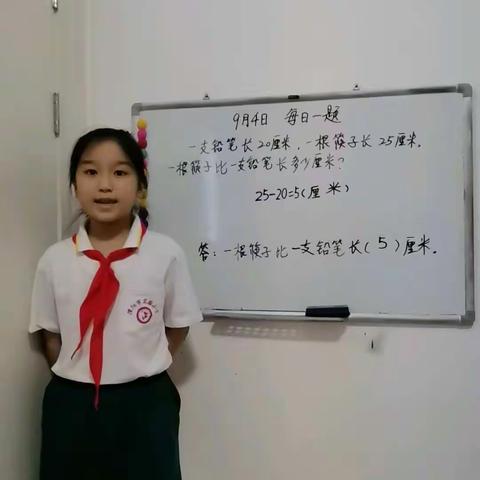 9月4日 每日一题
一支铅笔长20厘米，一根筷子长25厘米。
一根筷子比一支铅笔长多少厘米？
25-20=5(厘米)
答：一根筷子比一支铅笔长(5)厘米。